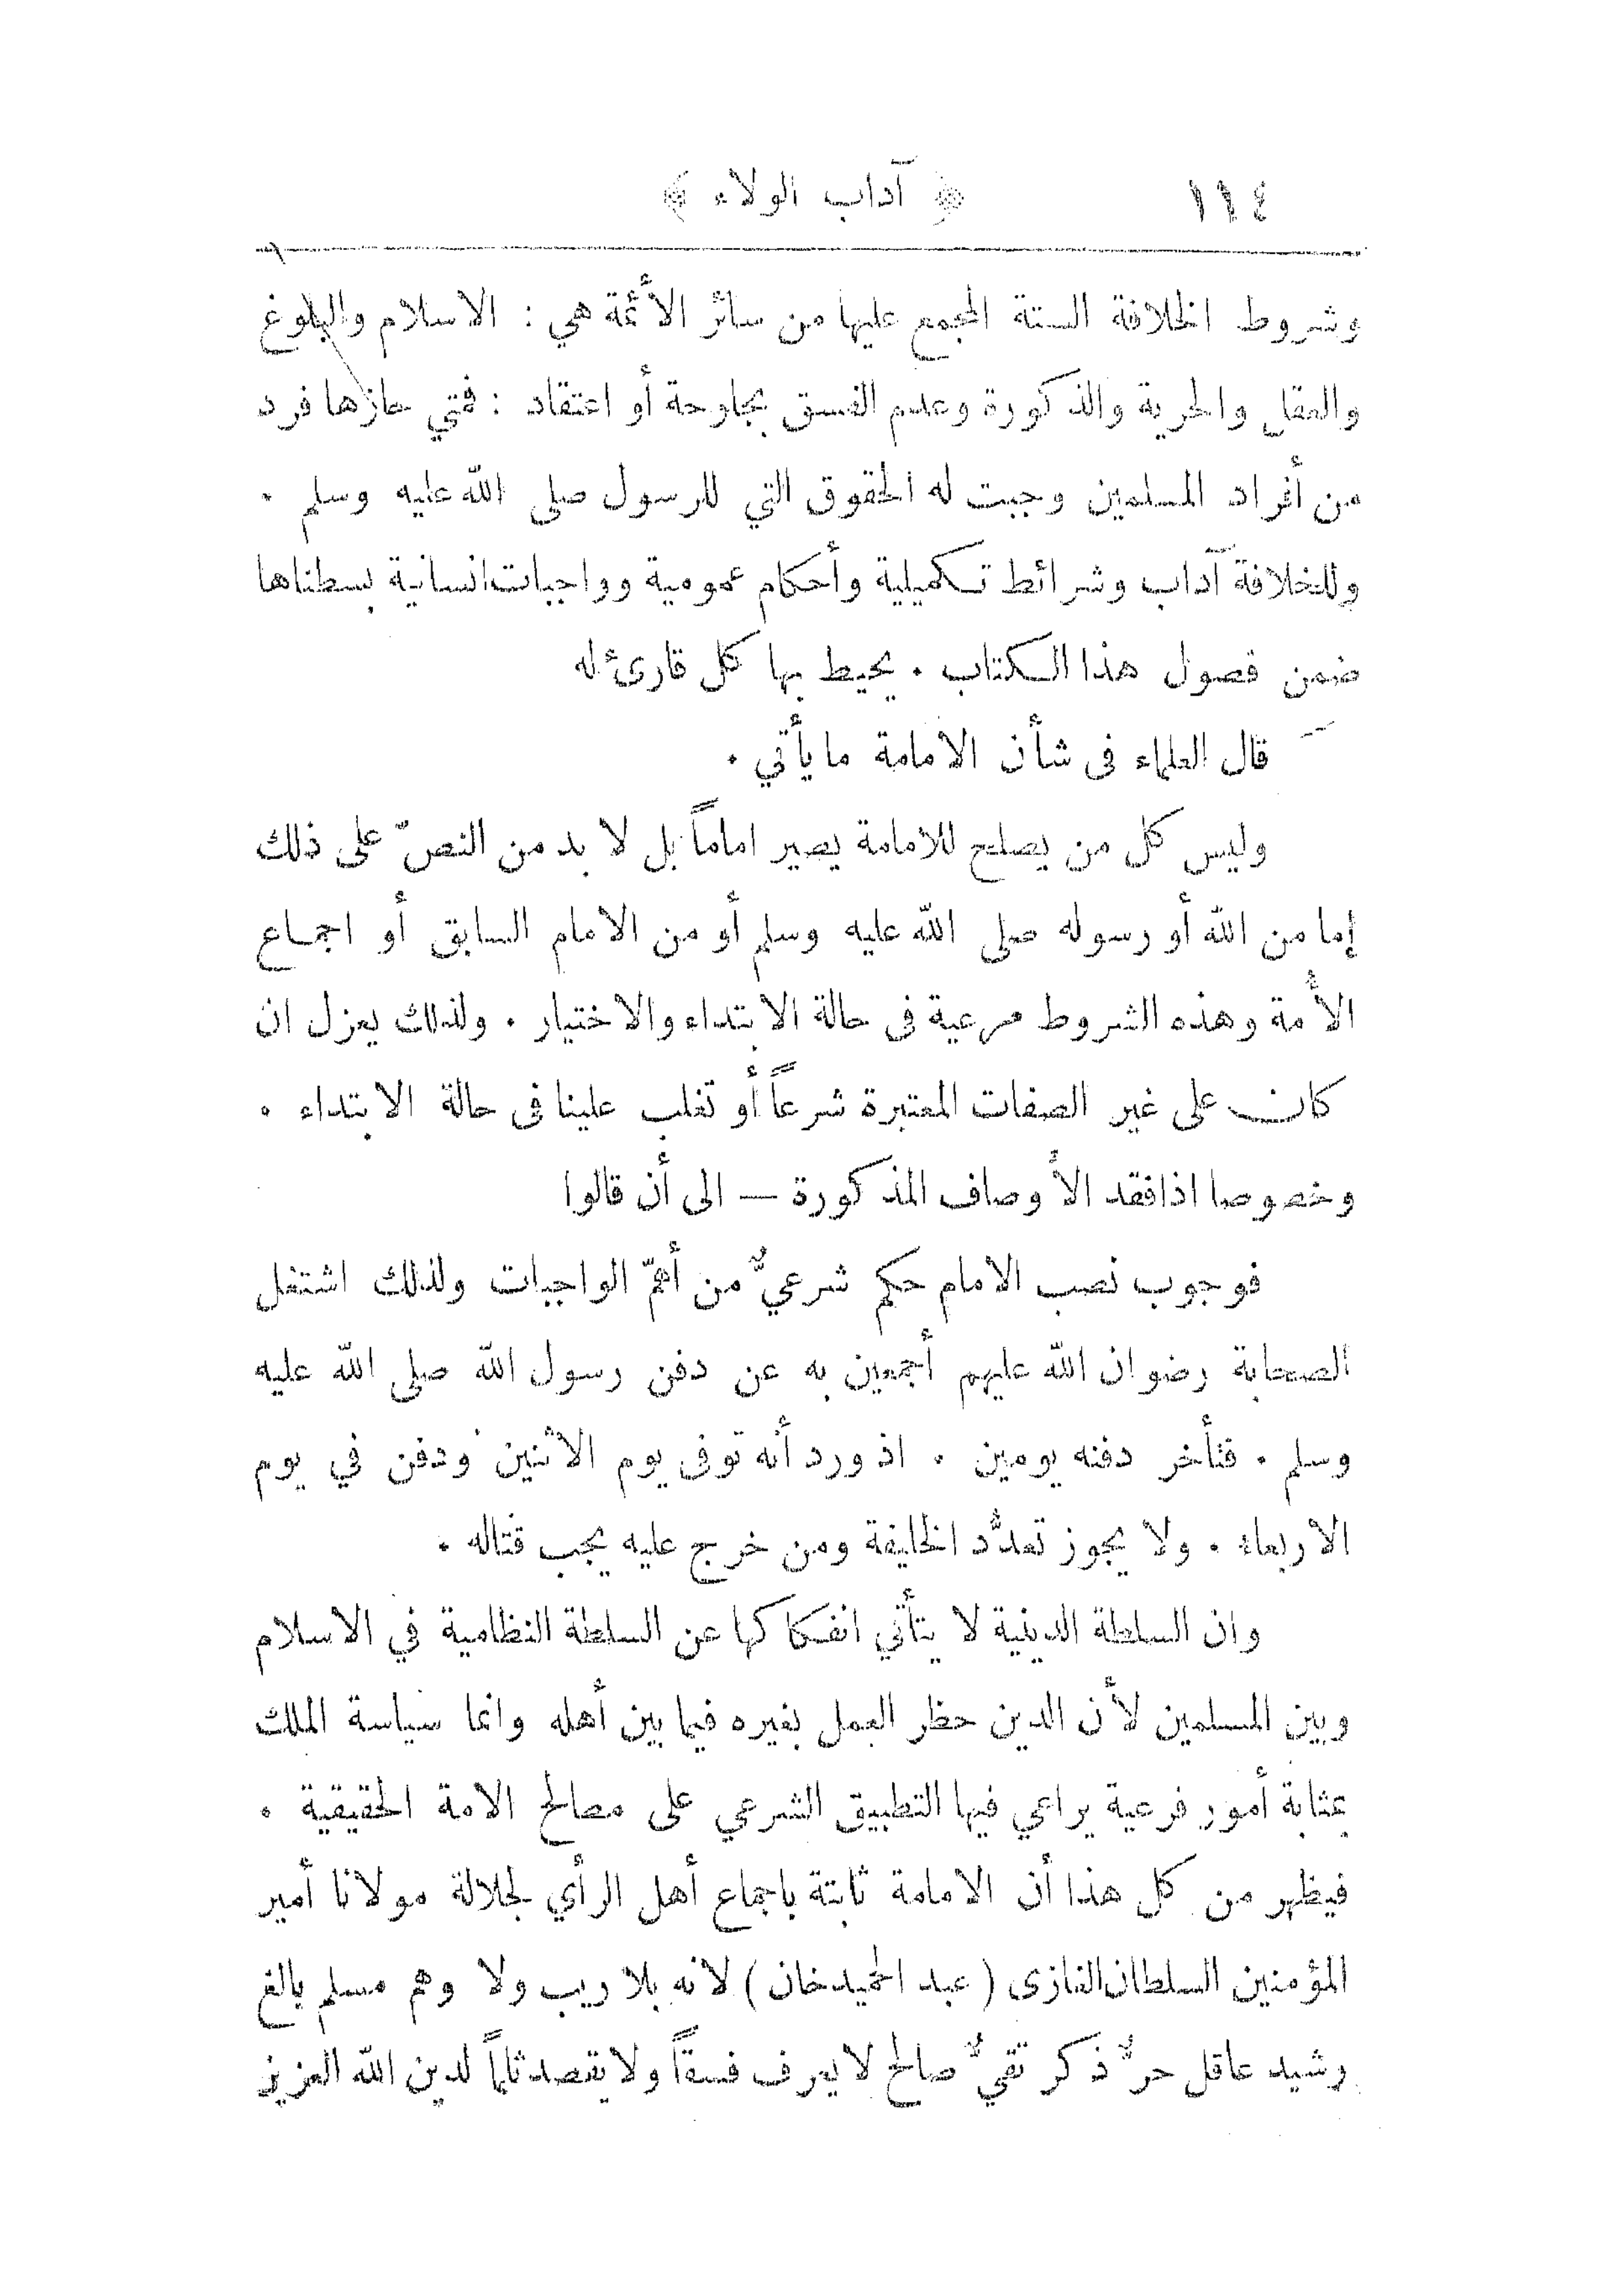 ١١٤ ﴿ آداب الولاء ﴾
وشروط الخلافة الستة المجمع عليها من سائر الأئمة هي : الاسلام والبلوغ
والعقل والحرية والذكورة وعدم الفسق بجارحة أو اعتقاد : فمتي حازها فرد
من أفراد المسلمين وجبت له الحقوق التي للرسول صلى الله عليه وسلم .
وللخلافة آداب وشرائط تكميلية وأحكام عمومية وواجبات انسانية بسطناها
ضمن فصول هذا الكتاب . يحيط بها كل قارئ له
قال العلماء فى شأن الامامة ما يأتي .
وليس كل من يصلح للامامة يصير اماماً بل لا بد من النصّ على ذلك
إما من الله أو رسوله صلى الله عليه وسلم أو من الامام السابق أو اجماع
الأمة وهذه الشروط مرعية فى حالة الابتداء والاختيار . ولذلك يعزل ان
كان على غير الصفات المعتبرة شرعاً أو تغلب علينا فى حالة الابتداء .
وخصوصا اذا فقد الأوصاف المذكورة — الى أن قالوا
فوجوب نصب الامام حكم شرعيٌّ من أهمّ الواجبات ولذلك اشتغل
الصحابة رضوان الله عليهم أجمعين به عن دفن رسول الله صلى الله عليه
وسلم . فتأخر دفنه يومين . اذ ورد أنه توفى يوم الاثنين ودفن في يوم
الاربعاء . ولا يجوز تعدُّد الخليفة ومن خرج عليه يجب قتاله .
وان السلطة الدينية لا يتأتي انفكاكها عن السلطة النظامية في الاسلام
وبين المسلمين لأن الدين حظر العمل بغيره فيما بين أهله وانما سياسة الملك
بمثابة أمور فرعية يراعي فيها التطبيق الشرعي على مصالح الامة الحقيقية .
فيظهر من كل هذا أن الامامة ثابتة باجماع أهل الرأي لجلالة مولانا أمير
المؤمنين السلطان الغازى ( عبد الحميد خان ) لانه بلا ريب ولا وهم مسلم بالغ
رشيد عاقل حرٌّ ذكر تقيٌّ صالح لا يعرف فسقاً ولا يقصد ثلماً لدين الله العزيز